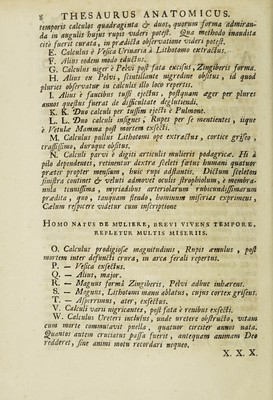 8 THESAURUS ANATOMICUS.
temporis calculos quadraginta & duos, quorum forma admiran-
da in angulis hujus rupis videri potest. Qua methodo inaudita
cite fuerit curata, in prædicta observatione videri potest.
E. Calculus è Vesica Urinaria à Lithotomo extractus.
F. Alius eodem modo eductus.
G. Calculus niger è Pelvi post fata excisus, Zingiberis forma.
H. Alius ex Pelvi, scintillante nigredine obsitus, id quod
pluries observatur in calculis illo loco repertis.
I. Alius è faucibus tussi ejectus, postquam æger per plures
annos questus fuerat de difficultate deglutiendi.
K. K. Duo calculi per tussim ejecti è Pulmone.
L. L. Duo calculi insignes, Rupes per se mentientes, iique
è Vetulæ Mamma post mortem exsecti.
M. Calculus pullus Lithotomi ope extractus, cortice griseo,
crassissimo, duroque obsitus.
N. Calculus parvi è digitis articulis mulieris podagricæ. Hi à
pilo dependentes, retinentur dextra Sceleti fœtus humani quatuor
præter propter mensium, huic rupi adstantis. Dictum sceleton
sinistra continet & veluti admovet oculis strophiolum, è membra-
nula tenuissima, myriadibus arteriolarum rubicundissimarum
prædita, quo, tanquam flendo, hominum miserias exprimens,
Cælum respicere videtur cum inscriptione
HOMO NATUS DE MULIERE, BREVI VIVENS TEMPORE,
REPLETUR MULTIS MISERIIS.
O. Calculus prodigiosæ magnitudinis, Rupes æmulus, post
mortem inter defuncti crura, in arca ferali repertus.
P. — Vesica exsectus.
Q. — Alius, major.
R. — Magnus formâ Zingiberis, Pelvi adhuc inhærens.
S. — Magnus, Lithotomi manu ablatus, cujus cortex griseus.
T. — Asperrimus, ater, exsectus.
V. Calculi varii nigricantes, post fata è renibus exsecti.
W. Calculus Ureteri inclusus, unde uretere obstructo, vitam
cum morte commutavit puella, quatuor circiter annos nata.
Quantos autem cruciatus passa fuerit, antequam animam Deo
redderet, sine animi motu recordari nequeo.
X. X. X.